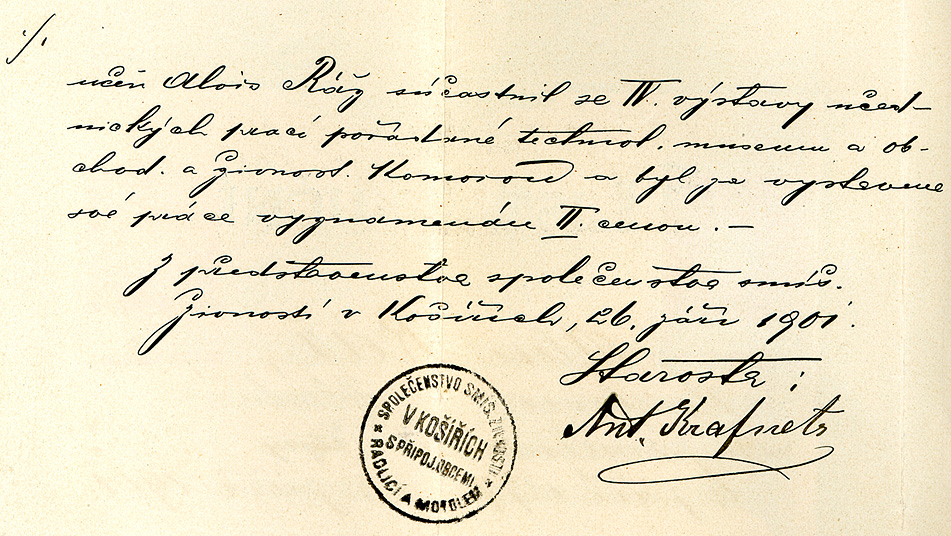 ·/.
učeň Alois Ráž súčastnil se IV. výstavy učed-
nických prací pořádané technol. museem a ob-
chod. a živnost. Komorou a byl za vystavené
své práce vyznamenán II. cenou. —
Z představenstva společenstva smíš.
živností v Košířích, 26. září 1901.
Starosta :
Ant.
SPOLEČENSTVO SMÍŠ. ŽIVNOSTÍ
V KOŠÍŘÍCH
S PŘIPOJ. OBCEMI
RADLICÍ A MOTOLEM